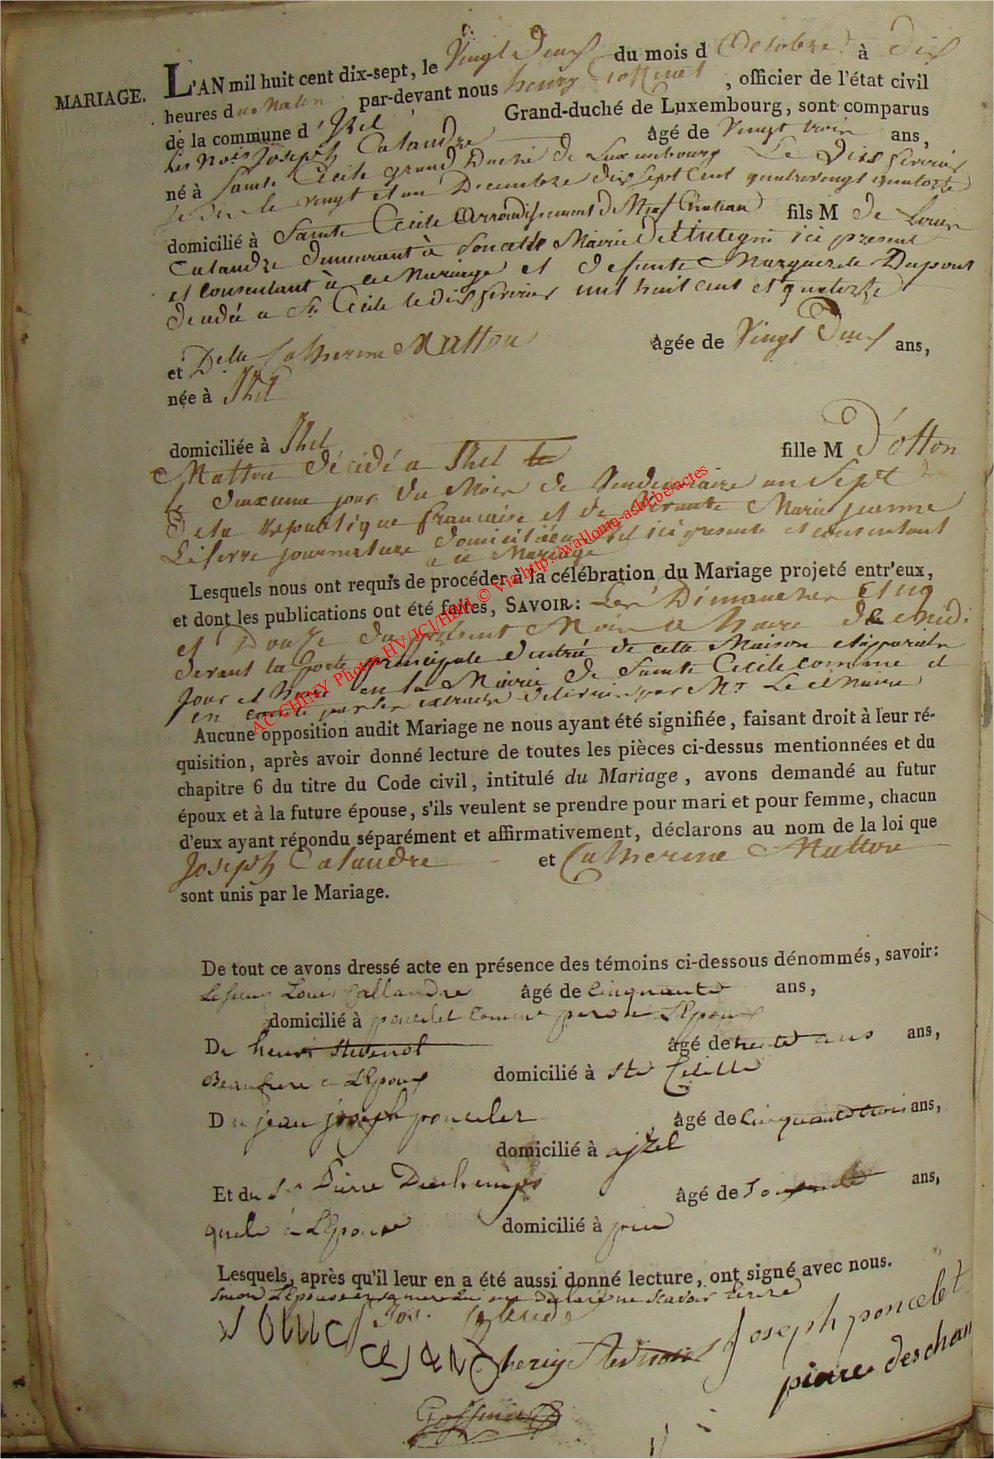 MARIAGE.
L'AN mil huit cent dix-sept, le Vingt Deux du mois d'Octobre à dix
heures du Matin par-devant nous henry , officier de l'état civil
de la commune d'Izel Grand-duché de Luxembourg, sont comparus
Joseph Calandre âgé de Vingt trois ans,
né à Sainte Cécile grand Duché de Luxembourg Le
vingt et un Décembre dix sept Cent quatrevingt quatorze
domicilié à Sainte Cecile Arrondissement de fils M de Louis
Calandre demeurant à Poncelle Mairie de ici présent
et consentant à ce Mariage et défunte Marguerite Dupont
décédée a Ste Cécile le dix mil huit cent et quatorze
et Delle Catherine Matton âgée de Vingt Deux ans,
née à Izel
domiciliée à Izel fille M D'otton
Matton décédé a Izel le
jour du Mois de Vendemiaire an Sept
De la République française et de vivante Marie jeanne
Lefevre journaliere domiciliée a Izel ici présente et consentant
a ce Mariage
Lesquels nous ont requis de procéder à la célébration du Mariage projeté entr'eux,
et dont les publications ont été faites, SAVOIR: Les Dimanches Cinq
et Douze du présent Mois a heure de Midi
devant la porte principale d'entrée de cette Maison et
jour et heure en la Mairie de Sainte Cecile comme il
en par les extraits délivrés par Mr Le Maire
Aucune opposition audit Mariage ne nous ayant été signifiée, faisant droit à leur ré-
quisition, après avoir donné lecture de toutes les pièces ci-dessus mentionnées et du
chapitre 6 du titre du Code civil, intitulé du Mariage, avons demandé au futur
époux et à la future épouse, s'ils veulent se prendre pour mari et pour femme, chacun
d'eux ayant répondu séparément et affirmativement, déclarons au nom de la loi que
Joseph Calandre et Catherine Matton
sont unis par le Mariage.
De tout ce avons dressé acte en présence des témoins ci-dessous dénommés, savoir:
Le sieur Louis Callandre âgé de Cinquante ans,
domicilié à poncelet Comme pere a L'Epoux
De henri Stevenot âgé de trente ans ans,
Beaufrere a L'Epoux domicilié à Ste Cecille
Du jean joseph poncelet âgé de Cinquante trois ans,
domicilié à ajzel
Et du Sr Pierre Deschamps âgé de Soixante ans,
à L'Epouse domicilié à
Lesquels, après qu'il leur en a été aussi donné lecture, ont signé avec nous.
Sinon L'Epouse et sa mere qui ont Déclaré ne scavoir Ecrire
Jos. Calande
henry Stevenot Joseph poncelet
piere descham
AC CHINY Photos HV/JCl/HBH © Via http://wallonia-asbl.be/actes